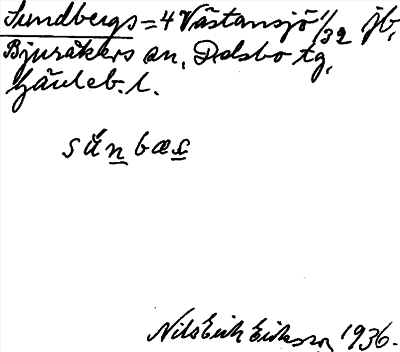 Sundbergs = 4 Västansjö 1/32 jb,
Bjuråkers sn, Delsbo tg,
Gävleb. l.
sún bæs
Nils Erik Eriksson 1936.